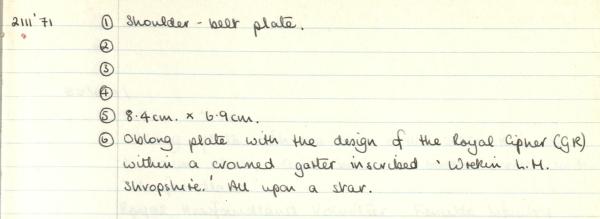 2111'71 ① Shoulder-belt plate.
②
③
④
⑤ 8.4cm. × 6.9cm.
⑥ Oblong plate with the design of the Royal Cipher (GR)
within a crowned garter inscribed 'Wrekin L.M.
Shropshire.' All upon a star.